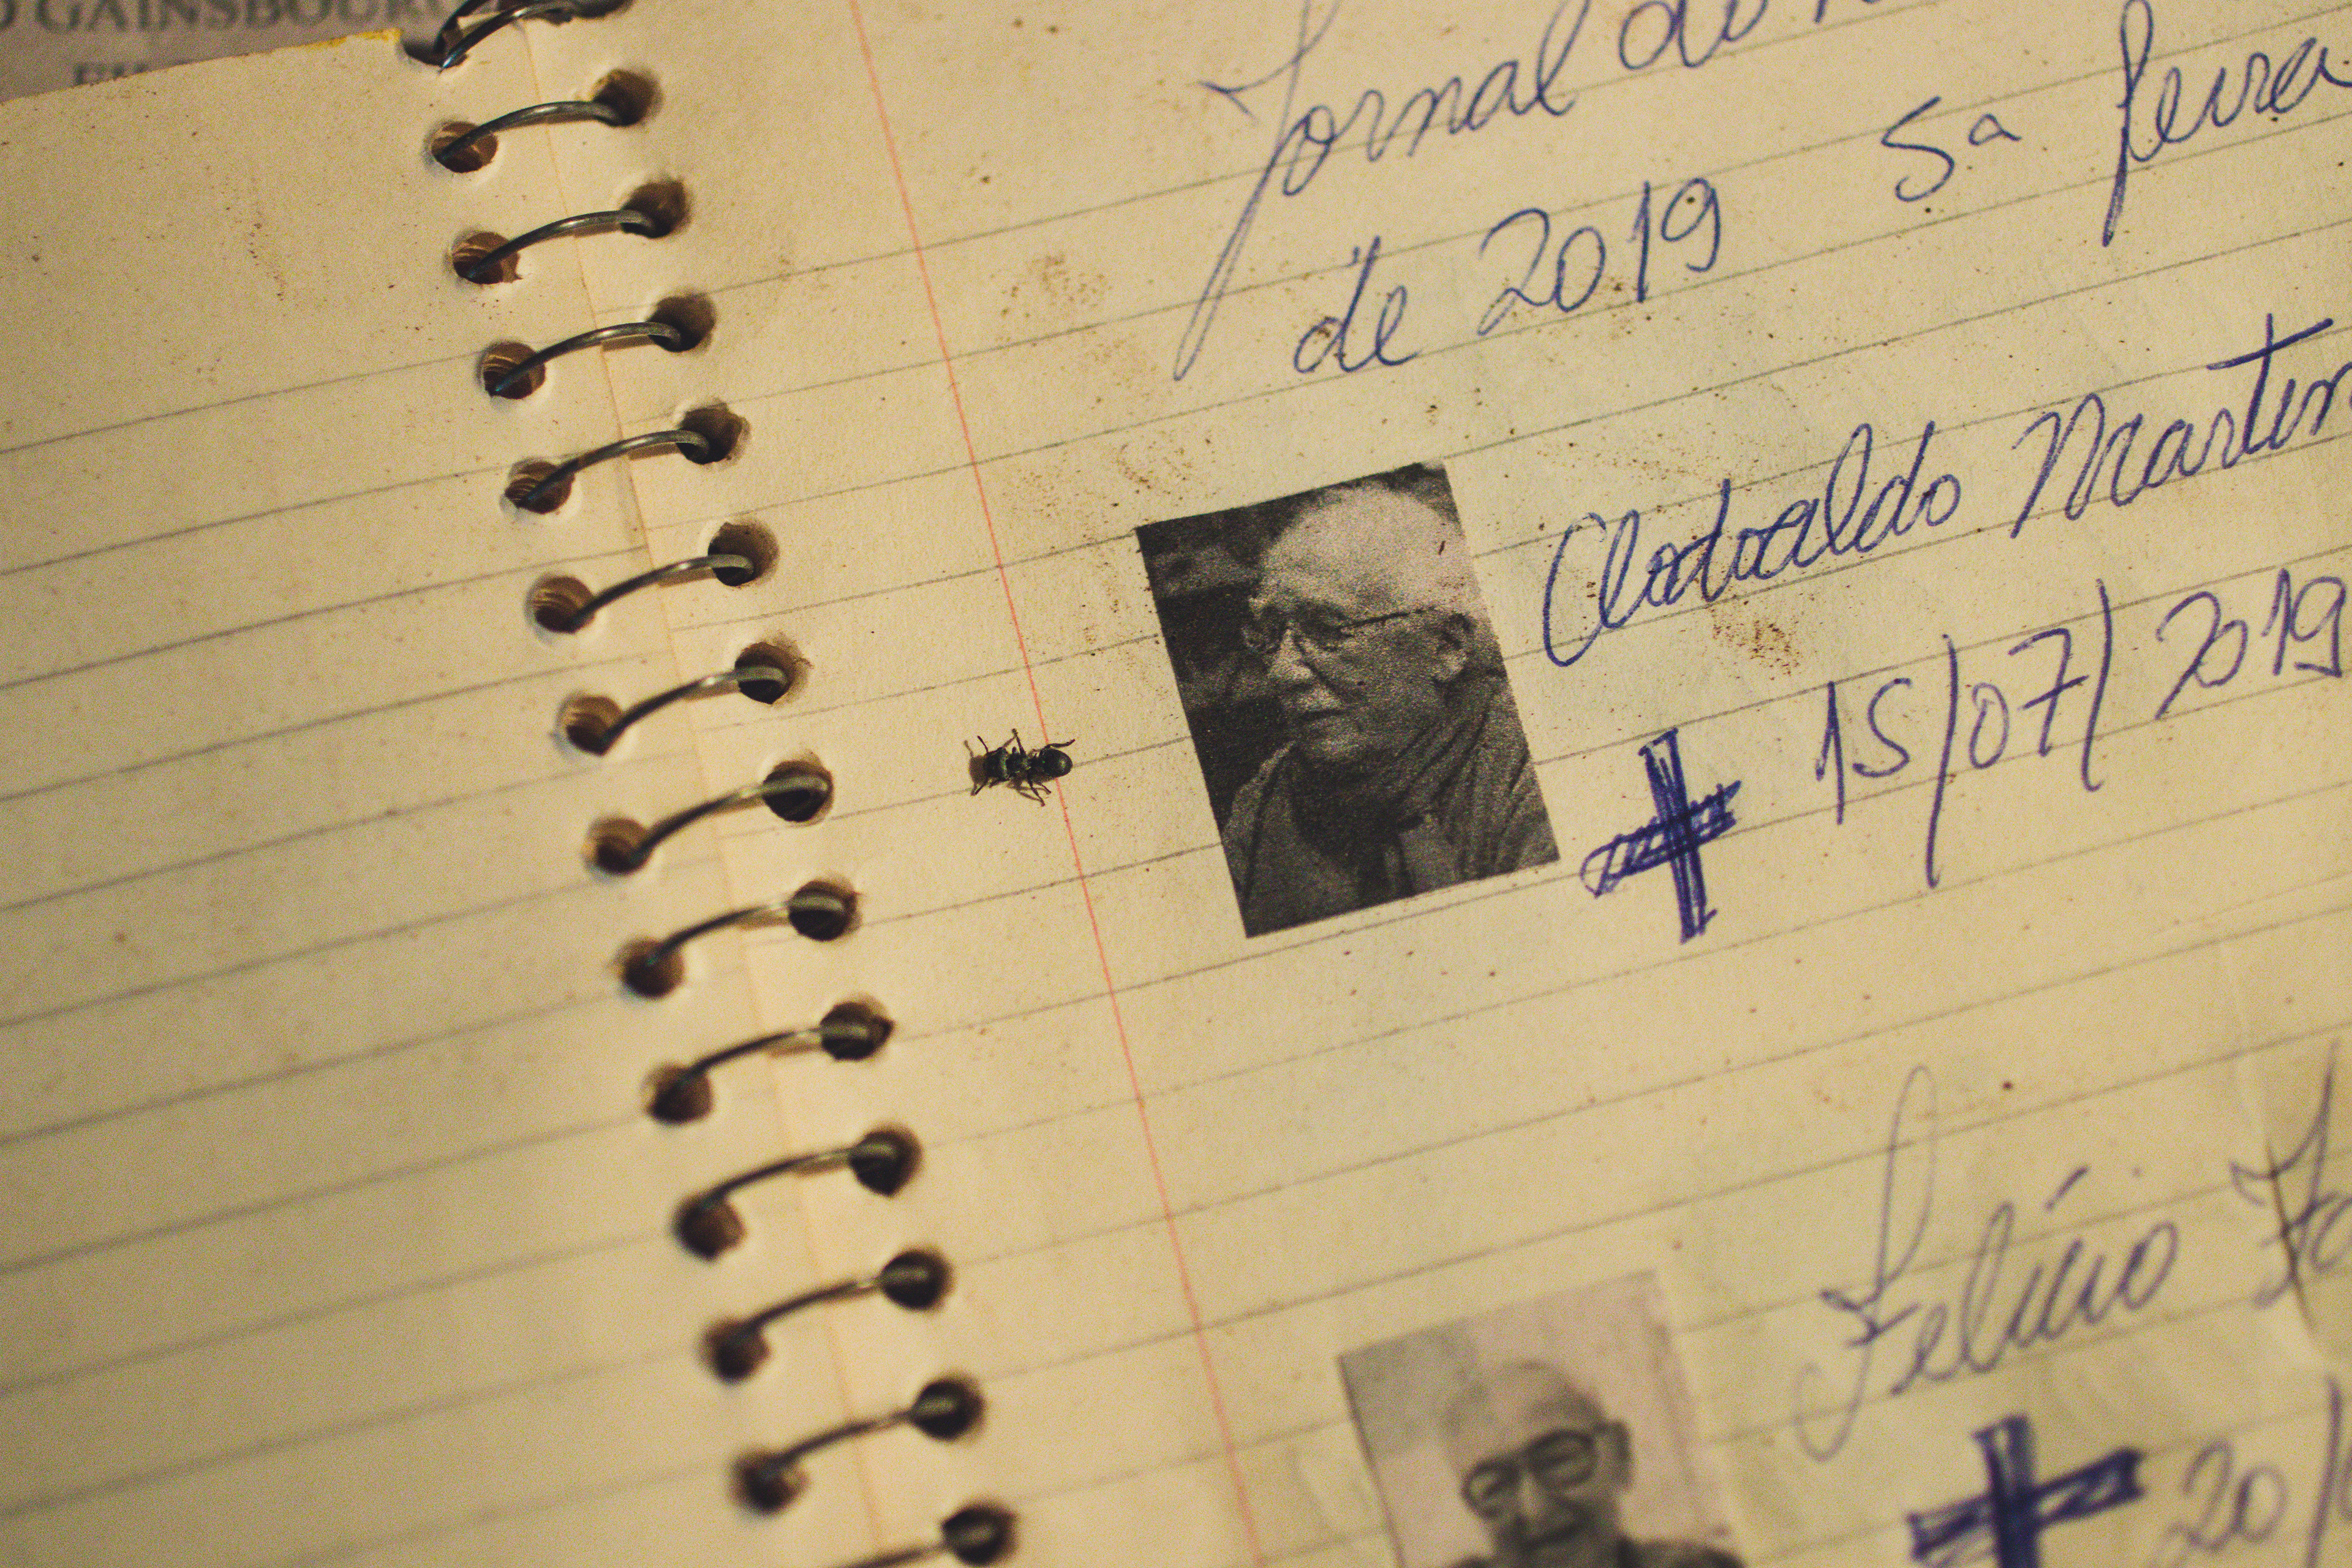 GAINSBOURG
Jornal do
de 2019 5a feira
Clodoaldo Martin
15/07/2019
Felício
20/